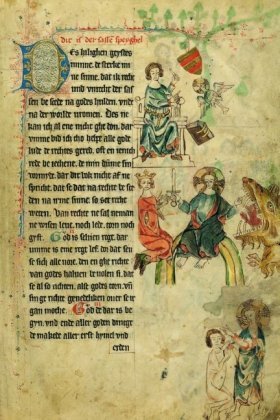 Dit is der sassen speyghel
Des halighen geystes
minne. de sterke mi
ne sinne. dat ik recht
vnd vnrecht der sas
sen be scede na godes hulden. vnde
na der werlde vromen. Des ne
kan ich al ene nicht ghe don. dar
vmme bidd ich tho helpe alle gode
lude de rechtes gerd. oft en ienich
rede be iechene. de min dumme sin
vormyde. dar dit bok nicht af ne
spricht. dat se dat na rechte be sce
den na irme sinne. so set rechte
weten. Van rechte ne sal neman
ne wisen leue. noch lede. torn noch
gyft. God is seluen regt. dar
vmme is eme regt lef. dor dat seen
se sich alle vore. den en ghe richte
van godes haluen be volen si. dat
se al so richten. also godes torn. vn
sin gi richte genedeliken ouer se ir
gan mothe. God de dar is be
gyn. vnd ende aller goden dinege
de makede aller erst hymel vnd
erden